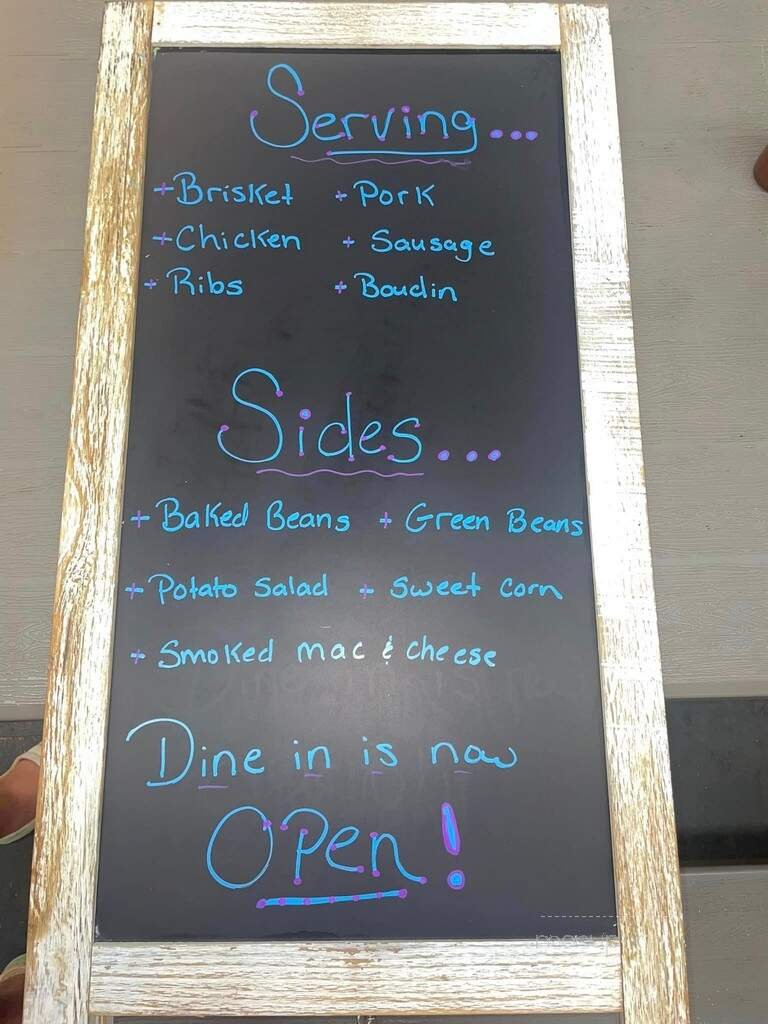 Serving...
+Brisket + Pork
+Chicken + Sausage
+ Ribs + Boudin
Sides...
+ Baked Beans + Green Beans
+ Potato Salad + Sweet corn
+ Smoked mac & cheese
Dine in is now
OPen!